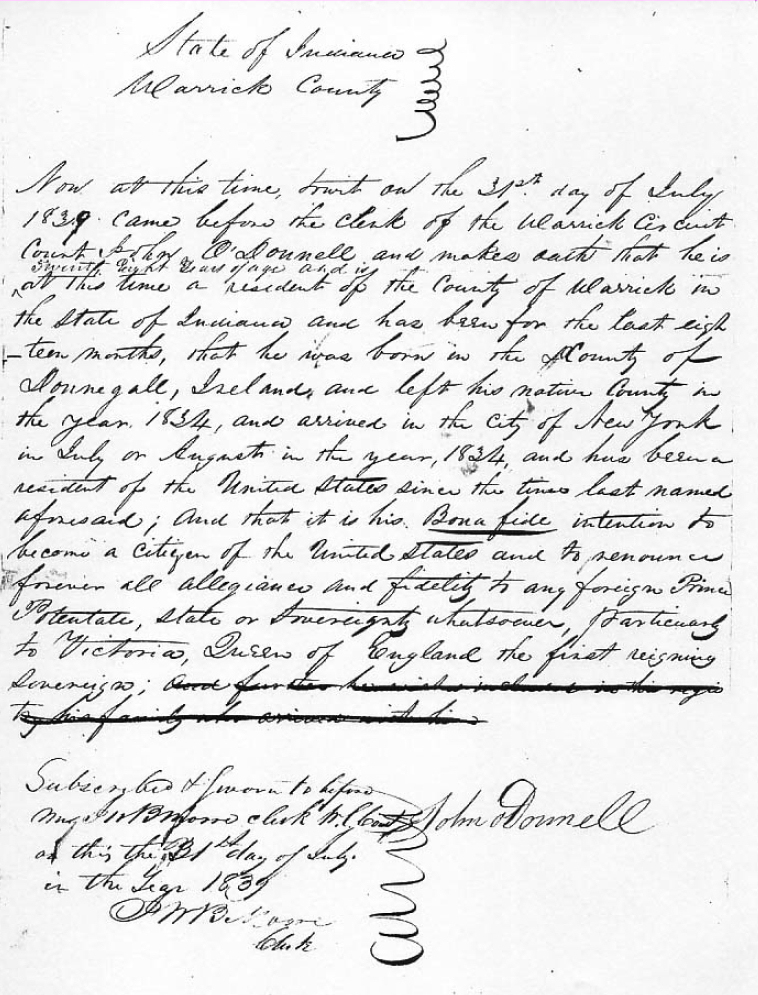 State of Indiana
Warrick County
Now at this time, towit on the 31st day of July
1839 came before the Clerk of the Warrick Circuit
Court John O'Donnell and makes oath that he is
Twenty Eight Years of age and is
at this time a resident of the County of Warrick in
the State of Indiana and has been for the last eigh
-teen months, that he was born in the County of
Donnegall, Ireland, and left his native County in
the year 1834, and arrived in the City of New York
in July or August in the year, 1834, and has been a
resident of the United States since the time last named
aforesaid; And that it is his Bona fide intention to
become a Citizen of the United States and to renounce
forever all allegiance and fidelity to any foreign Prince
Potentate, state or Sovereignty whatsoever, particularly
to Victoria, Queen of England the first reigning
Sovereign; And further he wishes included in this regis
try his family who arrived with him
Subscribed & Sworn to before
me clerk W. C. Court
on this the 31st day of July
in the Year 1839
Clerk
John O'Donnell